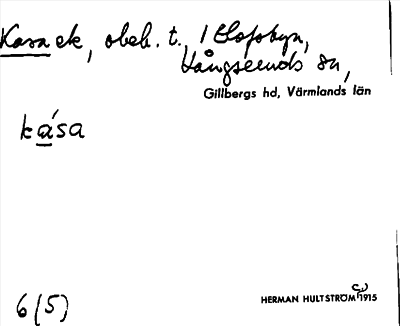 Kasaek, obeb. t. 1 Olofsbyn,
Långseruds sn,
Gillbergs hd, Värmlands län
kása
HERMAN HULTSTRÖM 1915
6 (5)